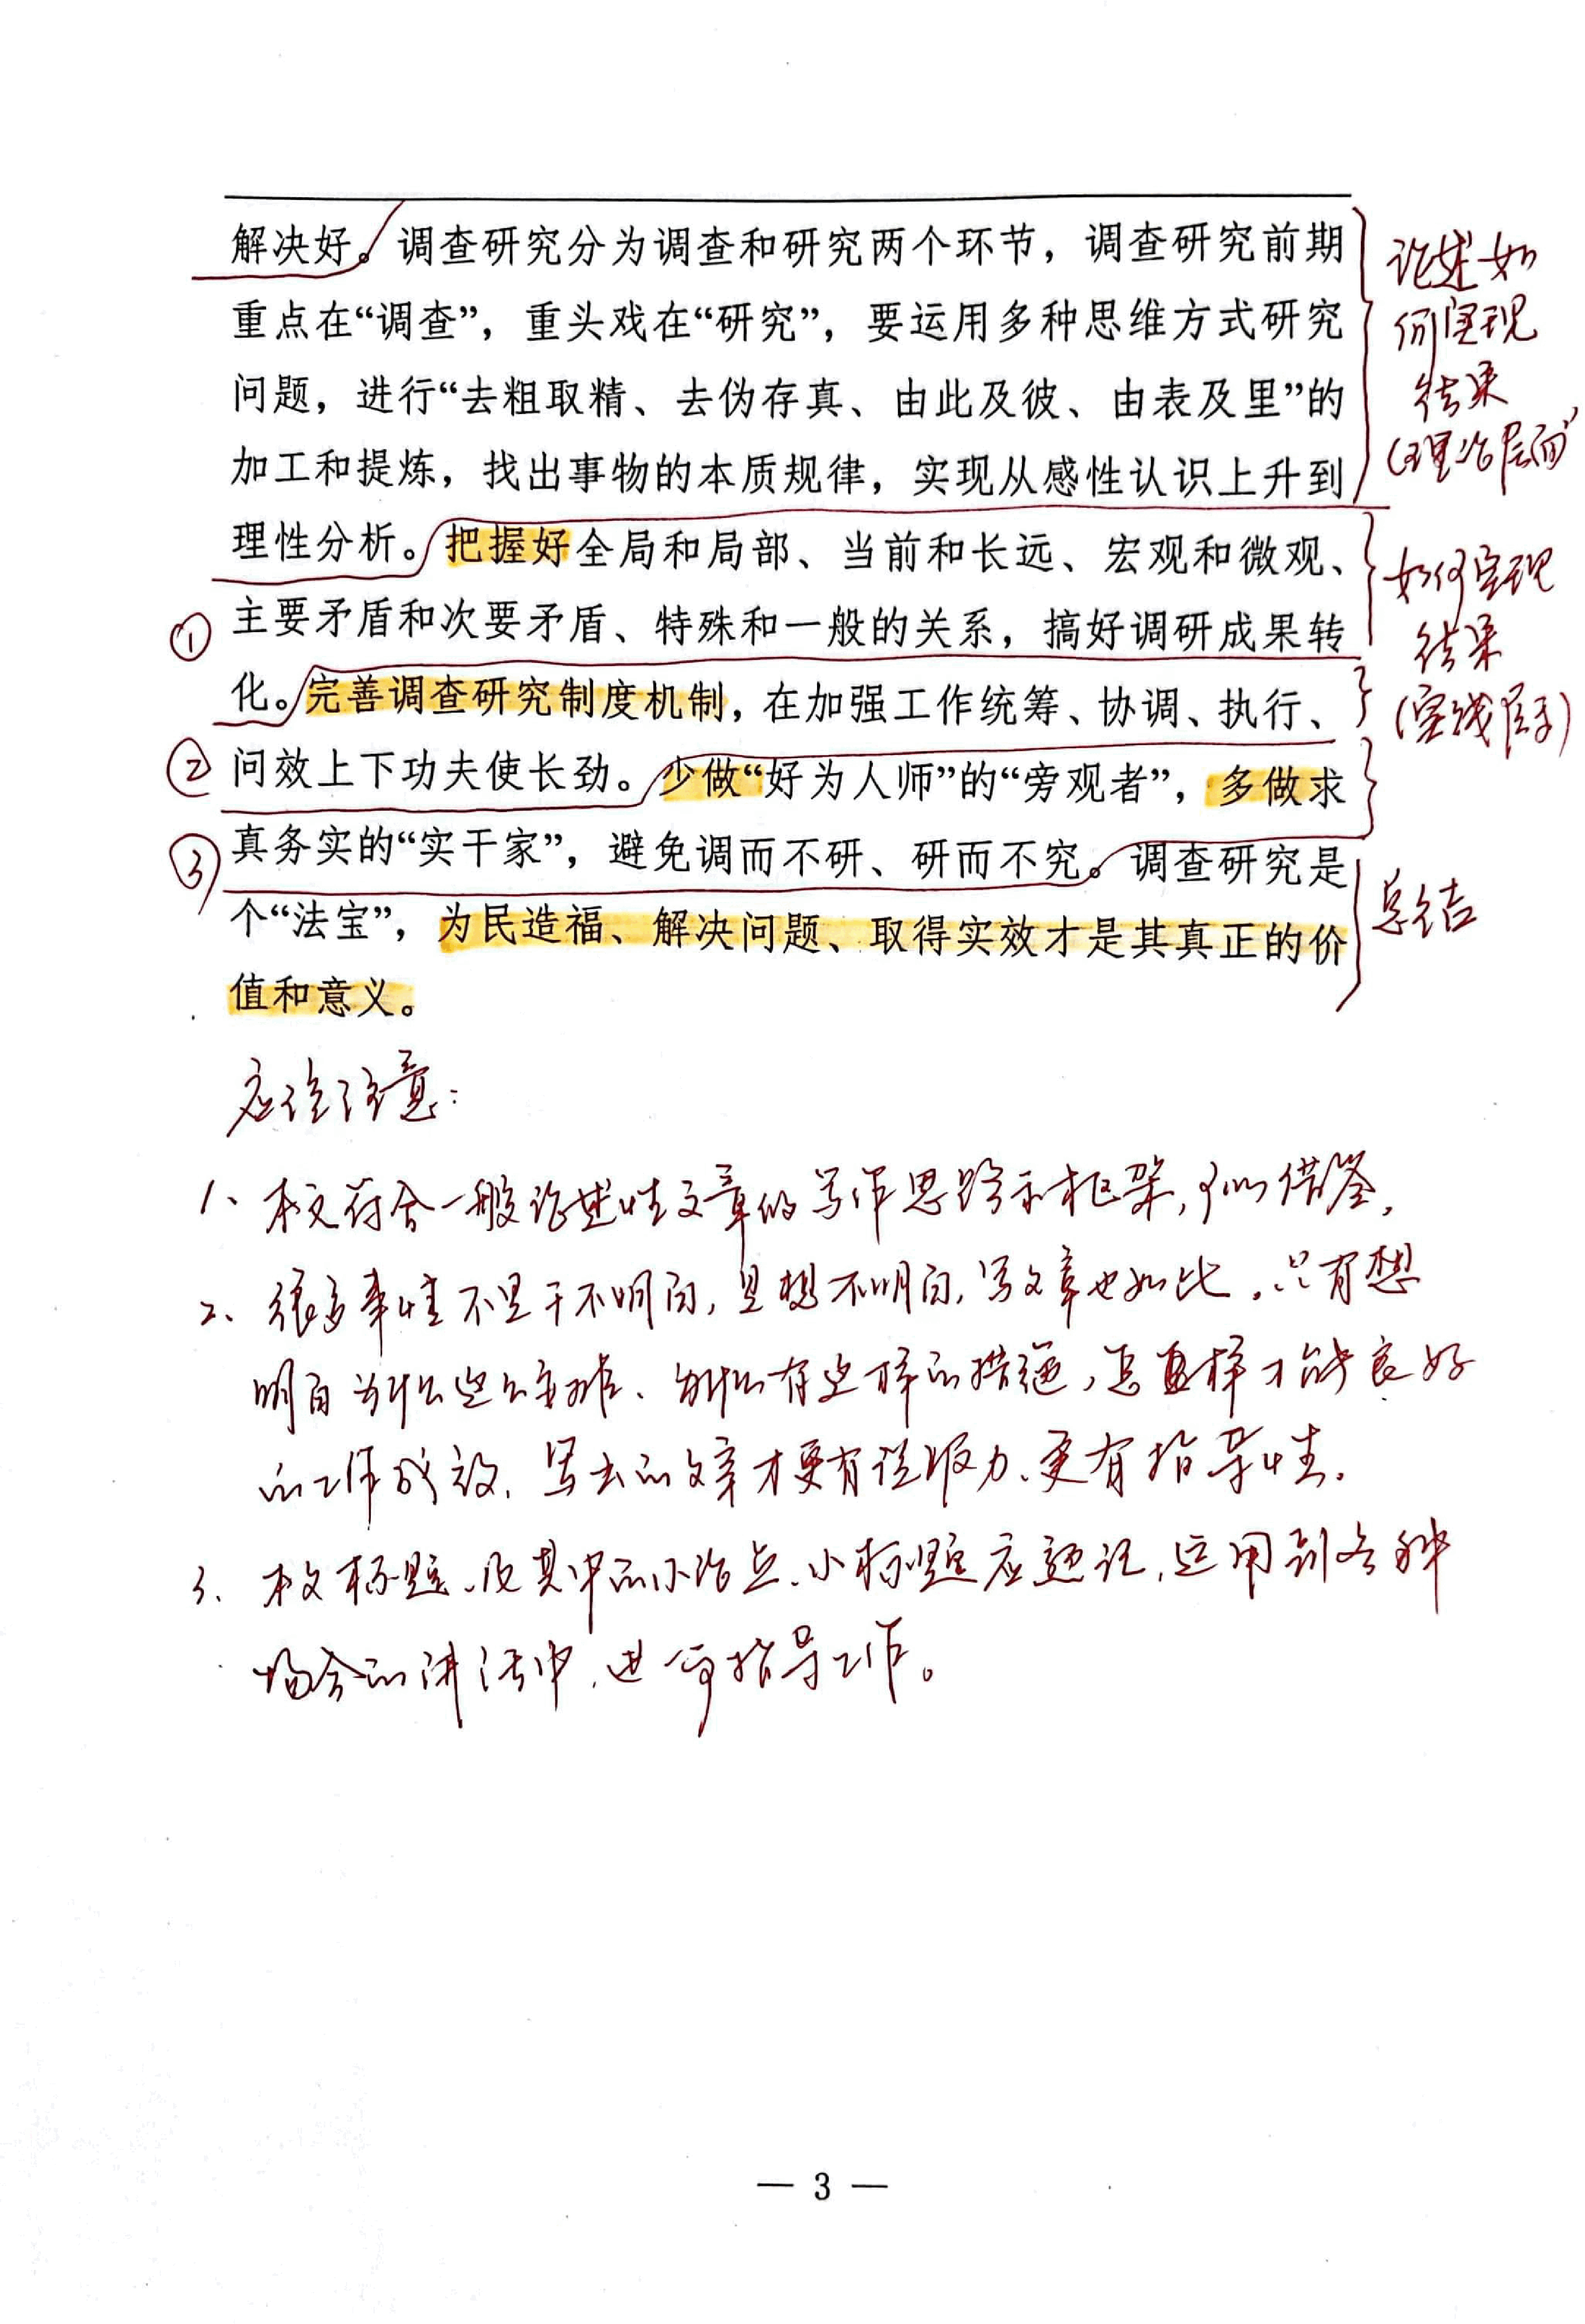 解决好。调查研究分为调查和研究两个环节，调查研究前期
重点在“调查”，重头戏在“研究”，要运用多种思维方式研究
问题，进行“去粗取精、去伪存真、由此及彼、由表及里”的
加工和提炼，找出事物的本质规律，实现从感性认识上升到
理性分析。把握好全局和局部、当前和长远、宏观和微观、
主要矛盾和次要矛盾、特殊和一般的关系，搞好调研成果转
化。完善调查研究制度机制，在加强工作统筹、协调、执行、
问效上下功夫使长劲。少做“好为人师”的“旁观者”，多做求
真务实的“实干家”，避免调而不研、研而不究。调查研究是
个“法宝”，为民造福、解决问题、取得实效才是其真正的价
值和意义。
论述如
何实现
结果
(理论层面)
如何实现
结果
(实践层面)
总结
①
②
③
应注意：
1、本文符合一般论述性文章的写作思路和框架，可以借鉴。
2、很多事情不是干不明白，是想不明白，写文章也如此。只有想
明白为什么这么难、为什么有这样的措施，怎样才能良好
的工作成效，写出的文章才更有说服力、更有指导性。
3、本文标题、及其中的小论点、小标题应熟记，运用到各种
场合的讲话中，进而指导工作。
— 3 —